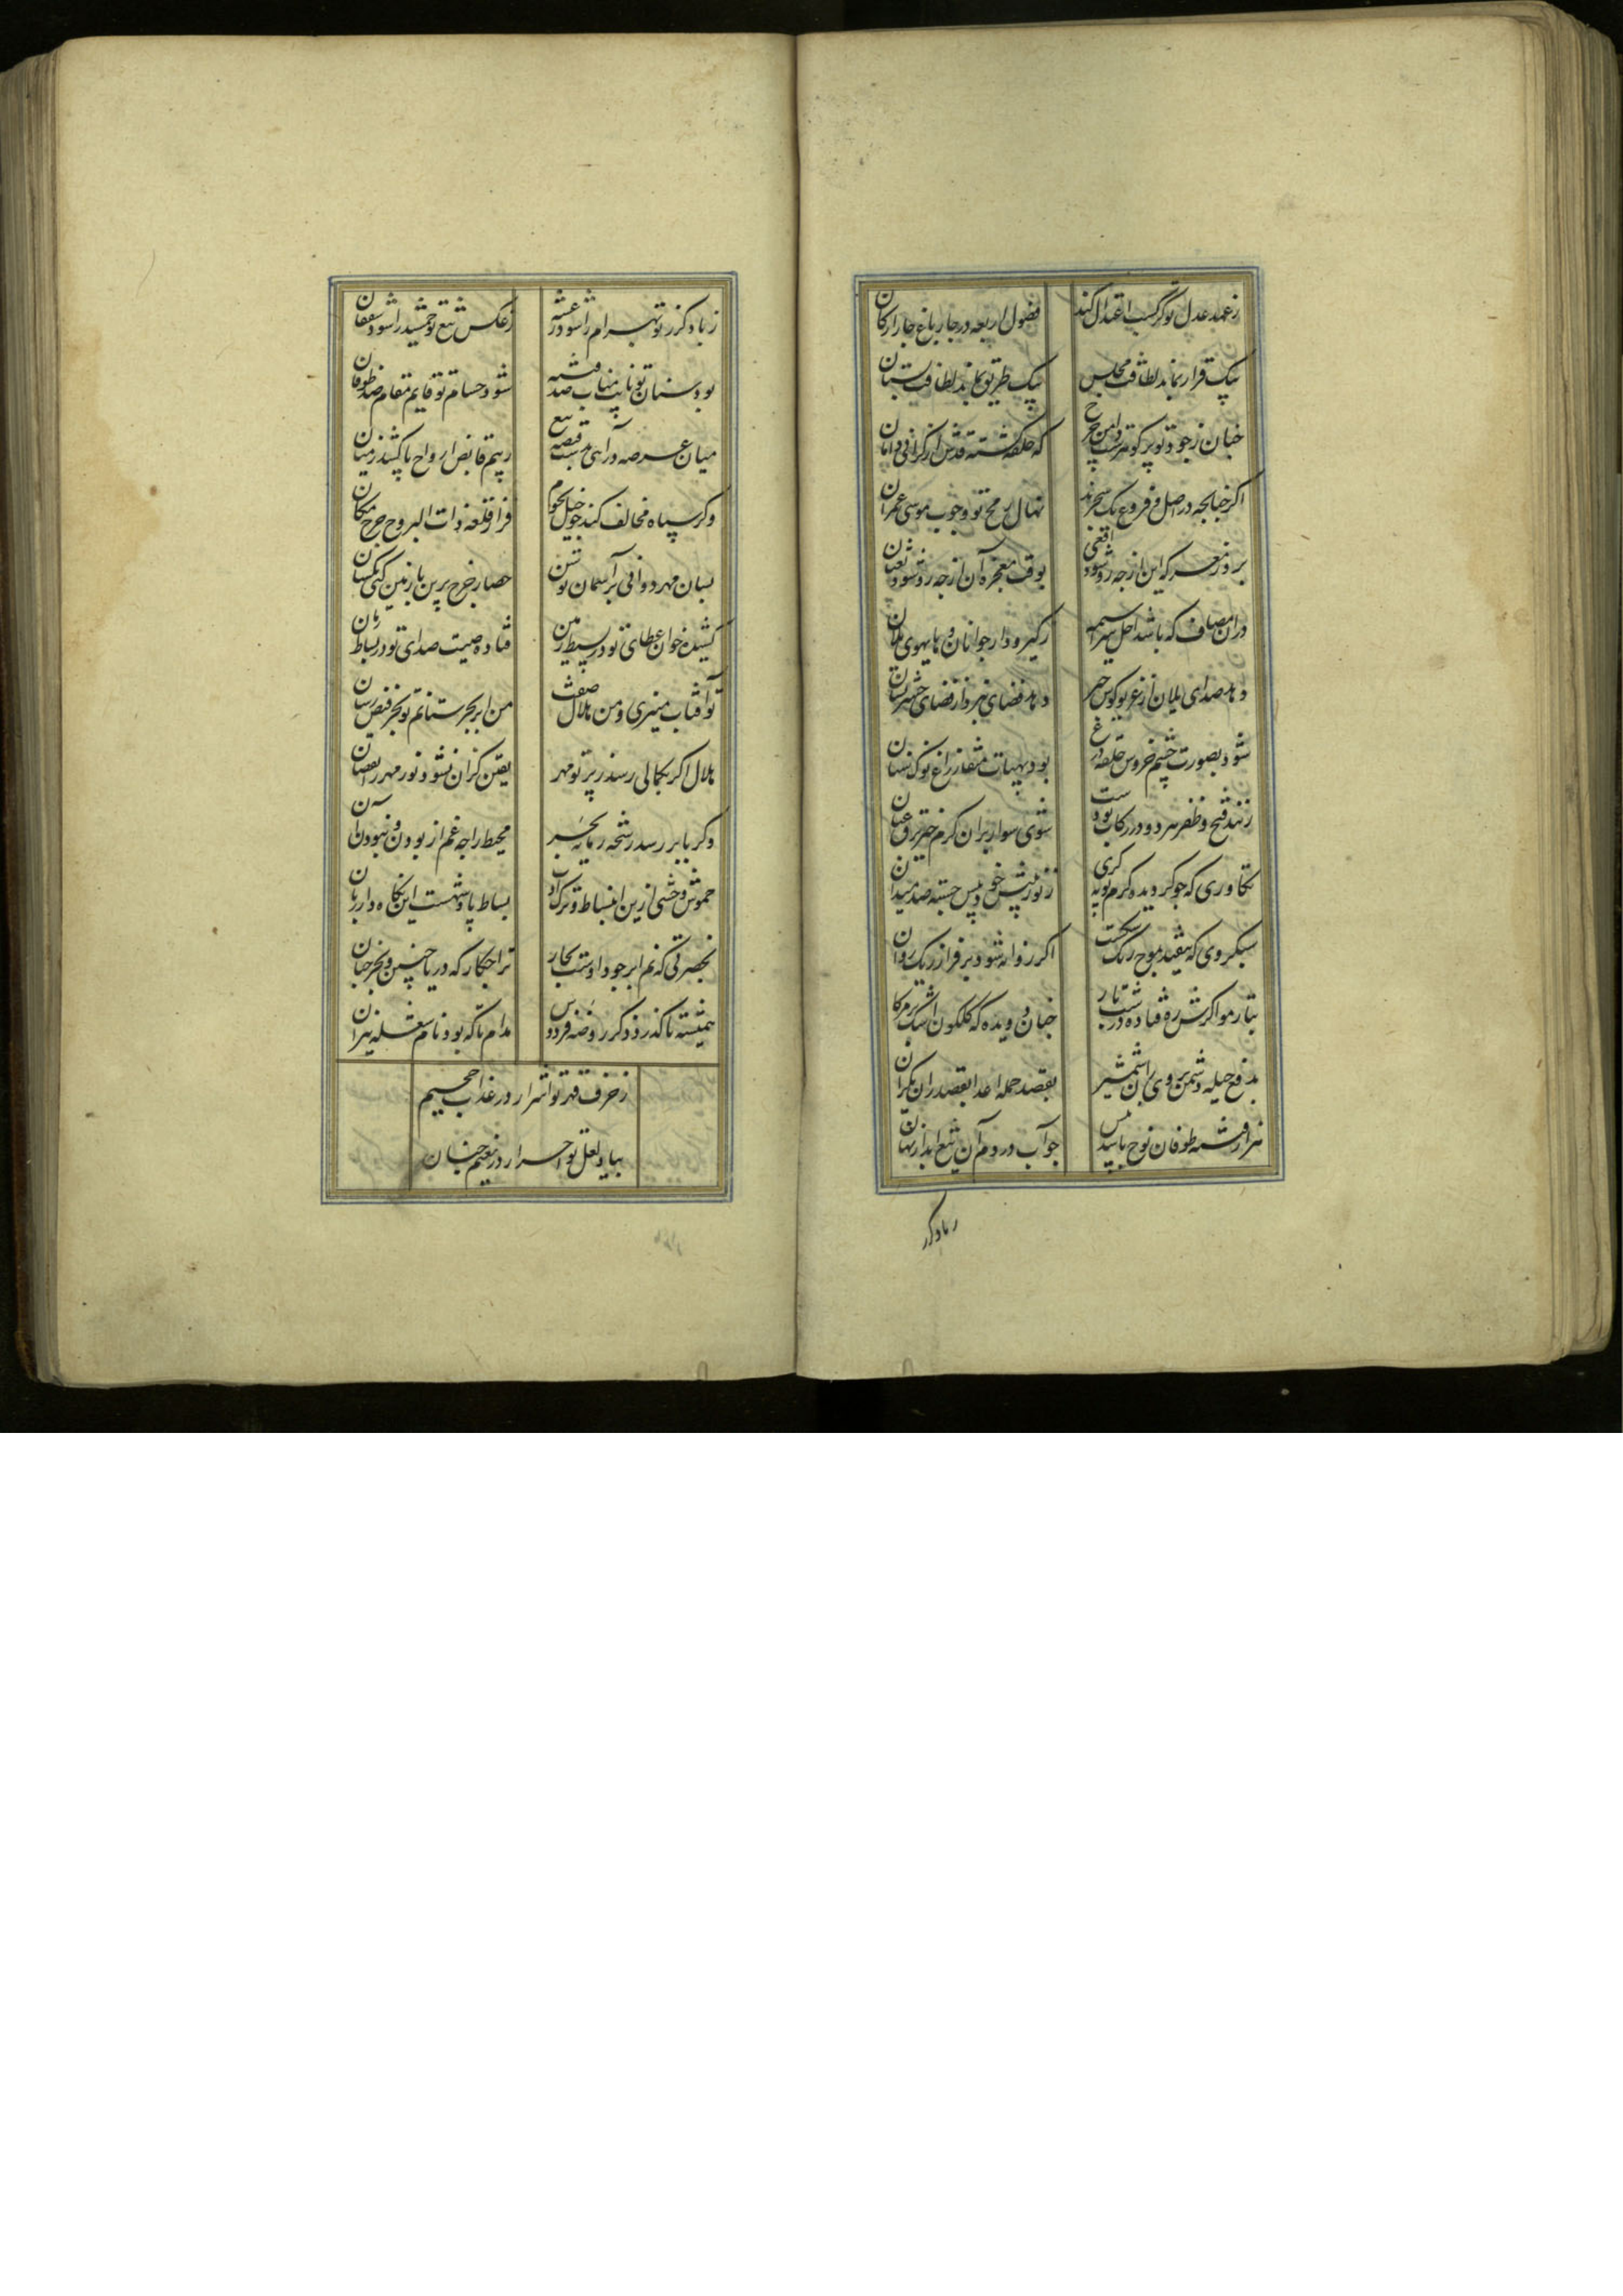 ز عهد عدل تو گر کسب اعتدال کند
فصول اربعه در چار باغ چار ارکان
بیک قرار نماند لطافت مجلس
بیک طریق نماند لطافت بستان
چنان ز جود تو پر گوهرست دامن چرخ
که حلقه گشته قدش از گرانی دامان
اگر چنانچه در اصل و فروع یک شجرند
نهال رمح تو و چوب موسی عمران
بروز معرکه این از چه رو شود افعی
بوقت معجزه آن از چه رو شود ثعبان
در آن مصاف که باشد اجل سراسیمه
ز گیر و دار جوانان و های هوی یلان
دهد صدای یلان از غریو کوس خبر
دهد فضای نبرد از فضای حشر نشان
شود بصورت چشم خروس حلقه درع
بود بهیات منقار زاغ نوک سنان
زنند فتح و ظفر هر دو در رکاب تو دست
شوی سوار بر آن گرم خیز برق عنان
تکاوری که چو گردیده گرم پویه گری
ز تور پیش خود و پس جسته صد میدان
سبکروی که نیفتد بموج ریگ شکست
اگر روانه شود بر فراز ریگ روان
بتار مو اگرش ره فتاده در شب تار
چنان دویده که گلگون اشک بر مژگان
بدفع حیله دشمن بروی آن شمشیر
بقصد حمله اعدا بقصد ران یکران
هزار فتنه طوفان نوح یابیدش
چو آب در دم آن تیغ آبدار نهان
ز باد گرز تو بهرام را شود رعشه
ز عکس تیغ تو جمشید را شود خفقان
بود سنان تو نایب مناب صد فتنه
شود حسام تو قایم مقام صد طوفان
میان عرصه درآیی بدست قبضه تیغ
ز بیم قابض ارواح پا کشد ز میان
و گر سپاه مخالف کند چو خیل نجوم
فراز قلعه ذات البروج چرخ مکان
بسان مهر دوانی بر آسمان توسن
حصار چرخ برین با زمین کنی یکسان
کشیده خوان عطای تو در بسیط زمین
فتاده صیت صدای تو در بساط زمان
تو آفتاب منیری و من هلال صفت
من ابر بحر ستانم تو بحر فیض رسان
هلال اگر بکمالی رسد ز پرتو مهر
یقین کزان نشود نور مهر را نقصان
و گر بابر رسد رشحه ز مایه بحر
محیط را چه غم از بودن و نبودن آن
خموش وحشی ازین انبساط و ترک ادب
بساط پادشهست این نگاه دار زبان
بحضرتی که نم ابر جود اوست بحار
ترا چکار که دریا چنین و بحر چنان
همیشه تا گذرد ذکر روضه فردوس
مدام تا که بود نام شعله نیران
ز حرف قهر تو اشرار در عذاب جحیم
بیاد لعل تو احرار در نعیم جنان
ز باد گرز